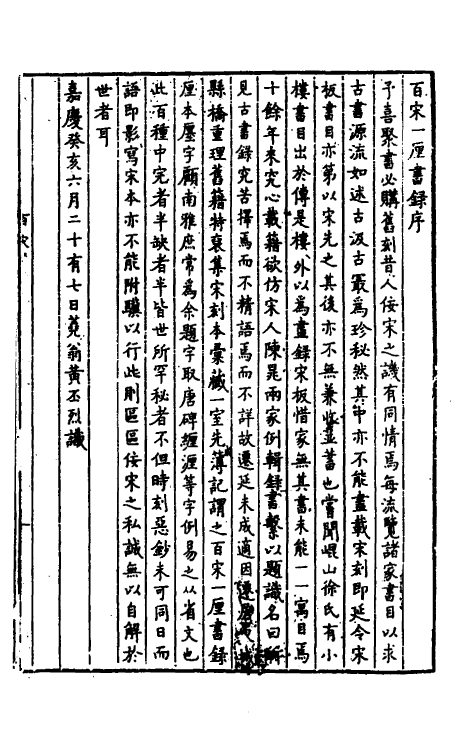 百宋一廛書錄序
予喜聚書必購舊刻昔人佞宋之譏有同情焉每流覽諸家書目以求
古書源流如述古汲古最爲珍秘然其中亦不能盡載宋刻即延令宋
板書目亦第以宋先之其後亦不無兼收並蓄也嘗聞崐山徐氏有小
樓書目出於傳是樓外以爲盡錄宋板惜家無其書未能一一寓目焉
十餘年來究心載籍欲仿宋人陳晁兩家例輯錄書繫以題識名曰所
見古書錄究苦擇焉而不精語焉而不詳故遷延未成適因遷居
縣橋重理舊籍特裒集宋刻本彙藏一室先簿記謂之百宋一廛書錄
廛本廛字顧南雅庶常爲余題字取唐碑纏瀍等字例易之从省文也
此百種中完者半缺者半皆世所罕秘者不但時刻惡鈔未可同日而
語即影寫宋本亦不能附驥以行此則區區佞宋之私誠無以自解於
世者耳
嘉慶癸亥六月二十有七日蕘翁黃丕烈識
百宋